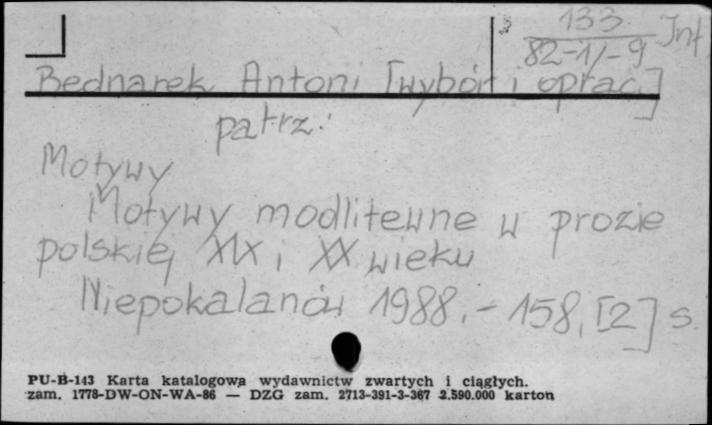 133
82-1/-9 Inf
Bednarek Antoni [wybór i oprac.]
patrz:
Motywy
Motywy modlitewne w prozie
polskiej XIX i XX wieku
Niepokalanów 1988.- 158, [2] s.
PU-B-143 Karta katalogowa wydawnictw zwartych i ciągłych.
zam. 1778-DW-ON-WA-86 — DZG zam. 2713-391-3-367 2.590.000 karton